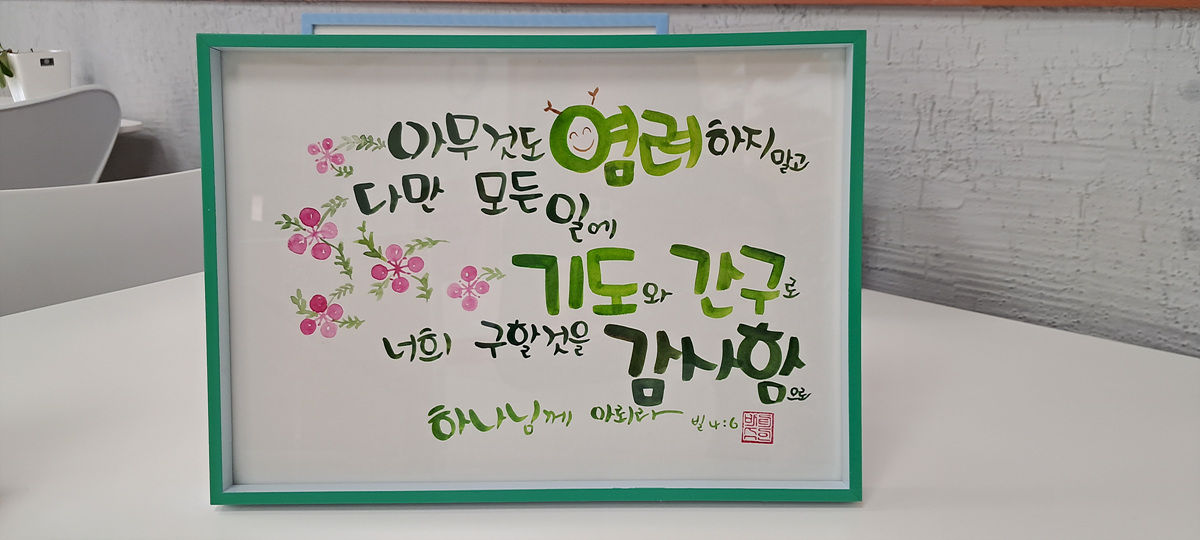 아무것도 염려하지 말고
다만 모든 일에
기도와 간구로
너희 구할것을 감사함으로
하나님께 아뢰라 빌 4:6